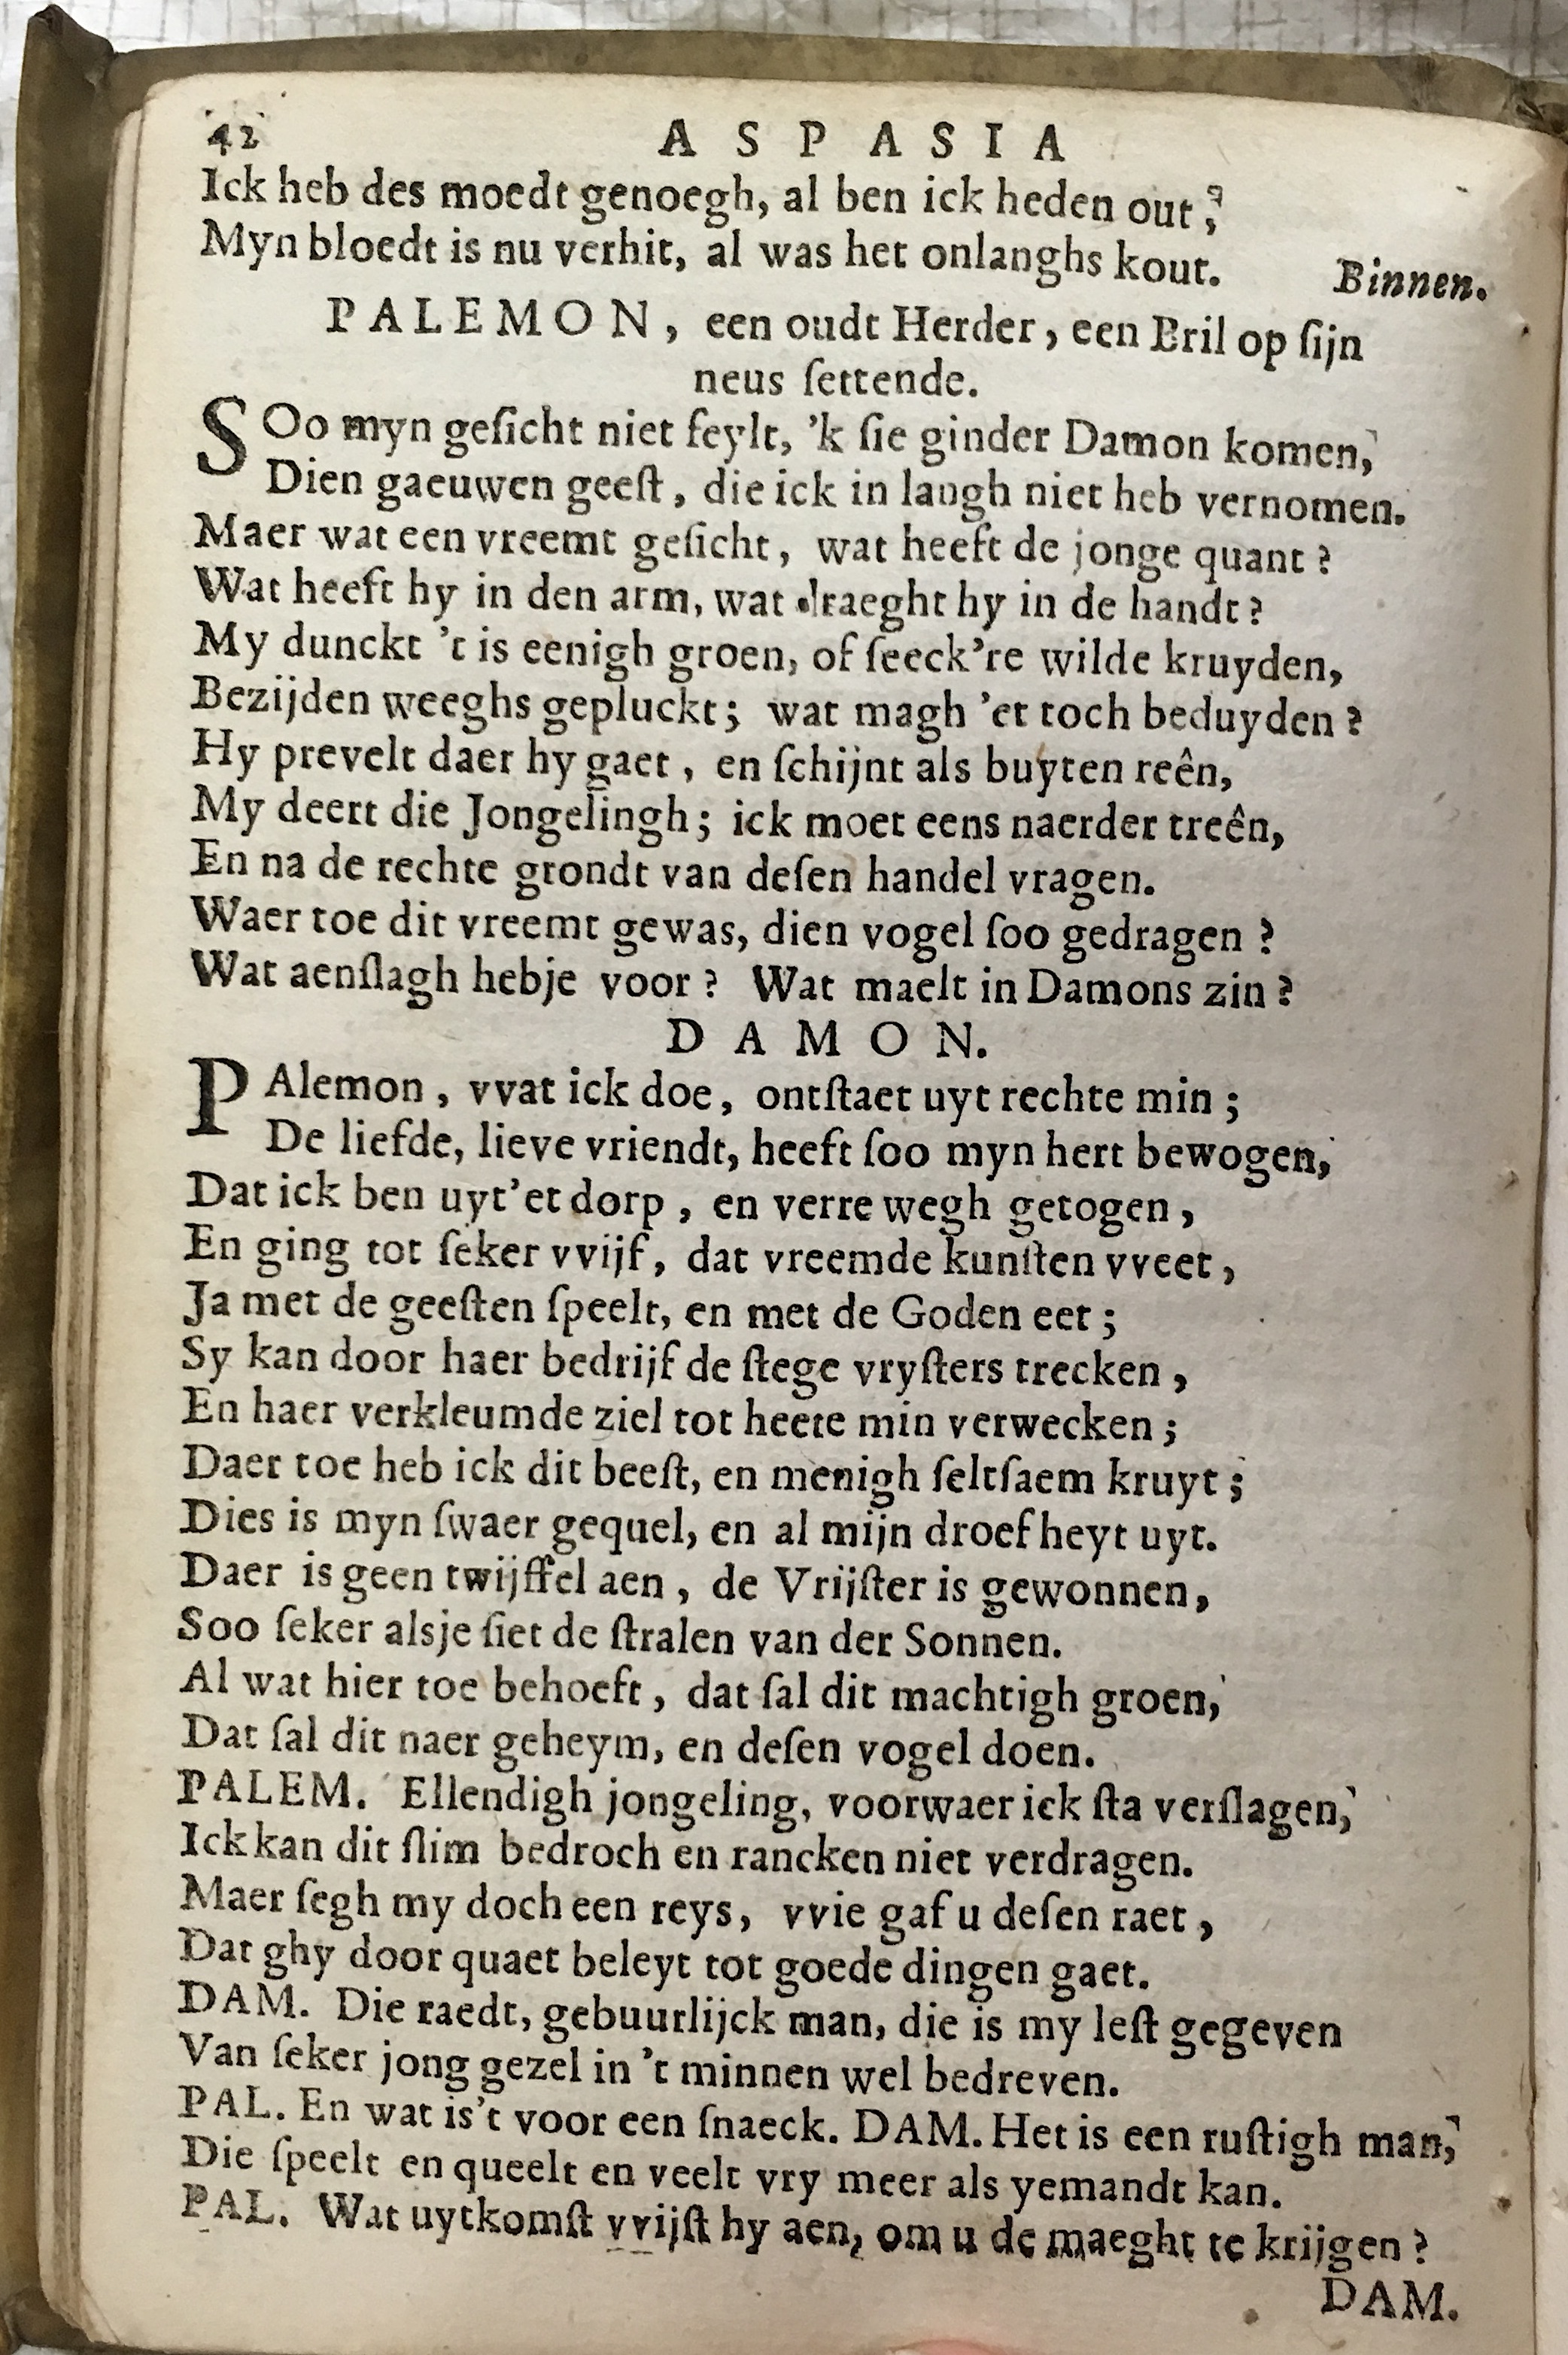 42 ASPASIA
Ick heb des moedt genoegh, al ben ick heden out,
Myn bloedt is nu verhit, al was het onlanghs kout.
Binnen.
PALEMON, een oudt Herder, een Bril op ſijn
neus ſettende.
SOo myn geſicht niet feylt, 'k ſie ginder Damon komen,
Dien gaeuwen geeſt, die ick in langh niet heb vernomen.
Maer wat een vreemt geſicht, wat heeft de jonge quant?
Wat heeft hy in den arm, wat draeght hy in de handt?
My dunckt 't is eenigh groen, of ſeeck're wilde kruyden,
Bezijden weeghs gepluckt; wat magh 'et toch beduyden?
Hy prevelt daer hy gaet, en ſchijnt als buyten reên,
My deert die Jongelingh; ick moet eens naerder treên,
En na de rechte grondt van deſen handel vragen.
Waer toe dit vreemt gewas, dien vogel ſoo gedragen?
Wat aenſlagh hebje voor? Wat maelt in Damons zin?
DAMON.
PAlemon, vvat ick doe, ontſtaet uyt rechte min;
De liefde, lieve vriendt, heeft ſoo myn hert bewogen,
Dat ick ben uyt'et dorp, en verre wegh getogen,
En ging tot ſeker vvijf, dat vreemde kunſten vveet,
Ja met de geeſten ſpeelt, en met de Goden eet;
Sy kan door haer bedrijf de ſtege vryſters trecken,
En haer verkleumde ziel tot heete min verwecken;
Daer toe heb ick dit beeſt, en menigh ſeltſaem kruyt;
Dies is myn ſwaer gequel, en al mijn droefheyt uyt.
Daer is geen twijffel aen, de Vrijſter is gewonnen,
Soo ſeker alsje ſiet de ſtralen van der Sonnen.
Al wat hier toe behoeft, dat ſal dit machtigh groen,
Dat ſal dit naer geheym, en deſen vogel doen.
PALEM. Ellendigh jongeling, voorwaer ick ſta verſlagen,
Ick kan dit ſlim bedroch en rancken niet verdragen.
Maer ſegh my doch een reys, vvie gaf u deſen raet,
Dat ghy door quaet beleyt tot goede dingen gaet.
DAM. Die raedt, gebuurlijck man, die is my leſt gegeven
Van ſeker jong gezel in 't minnen wel bedreven.
PAL. En wat is't voor een ſnaeck. DAM. Het is een ruſtigh man,
Die ſpeelt en queelt en veelt vry meer als yemandt kan.
PAL. Wat uytkomſt vvijſt hy aen, om u de maeght te krijgen?
DAM.